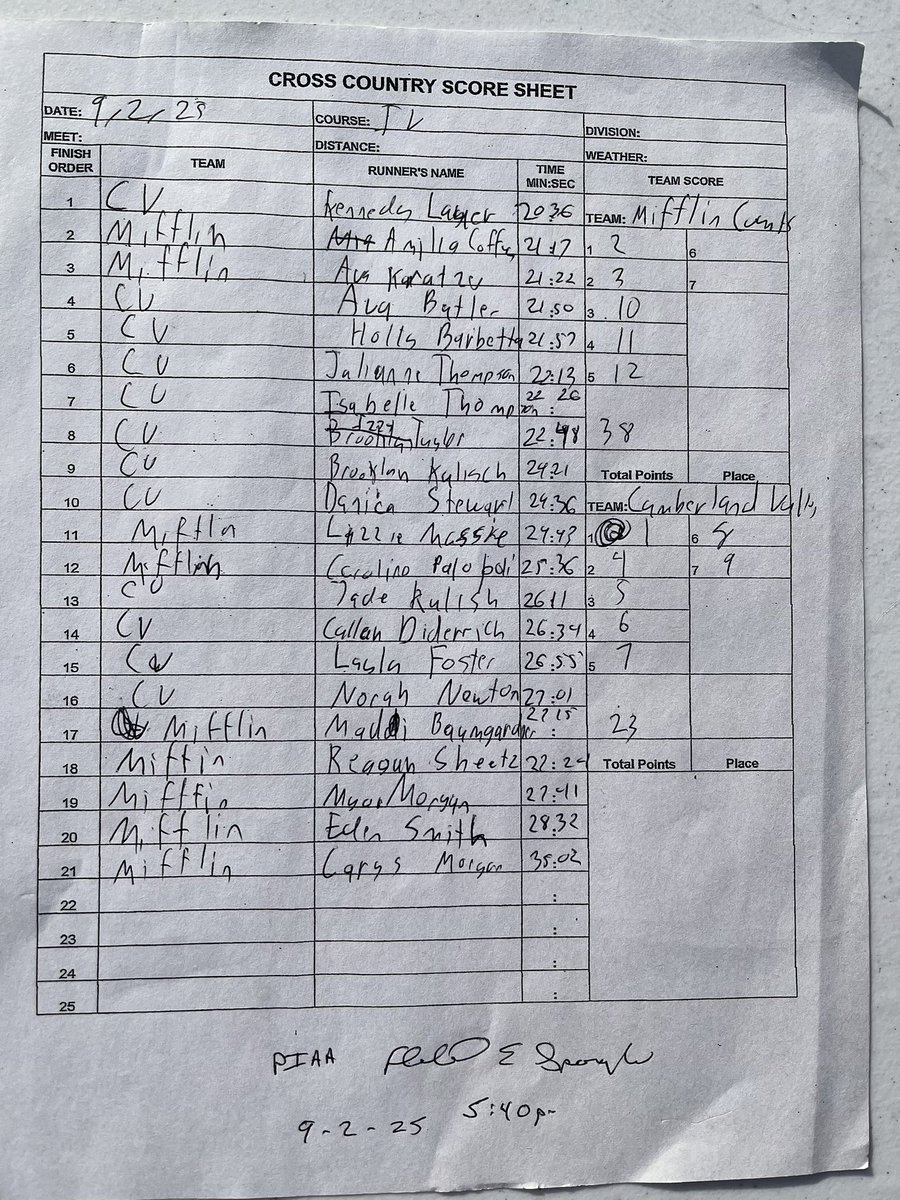 CROSS COUNTRY SCORE SHEET
DATE: 9, 2, 25 COURSE: DIVISION:
MEET: DISTANCE: WEATHER:
FINISH ORDER TEAM RUNNER'S NAME TIME MIN:SEC TEAM SCORE
1 CV Kennedy 20 36 TEAM: Mifflin
2 Mifflin 21:17 1 2 6
3 Mifflin Ava 21:22 2 3 7
4 CV Ava Butler 21:50 3 10
5 CV Barbetta 21:57 4 11
6 CV Julianne Thompson 22:13 5 12
7 CV Isabelle Thompson 22 26 :
8 CV Taylor 22:48 38
9 CV Brooklyn Kulisch 24:21 Total Points Place
10 CV Danica Stewart 24:36 TEAM: Cumberland
11 Mifflin Lizzie 24:43 1 1 6 8
12 Mifflin 25:36 2 4 7 9
13 CV Jade Kulish 26 11 3 5
14 CV Callan Diderrich 26:34 4 6
15 CV Layla Foster 26:55 5 7
16 CV Norah Newton 27:01
17 Mifflin Maddi Baumgardner 27 15 : 23
18 Mifflin Reagan Sheetz Total Points Place
19 Mifflin Morgan 27:41
20 Mifflin Eden Smith 28:32
21 Mifflin Carys Morgan 35:02
22 :
23 :
24 :
25 :
PIAA E
9-2-25 5:40p